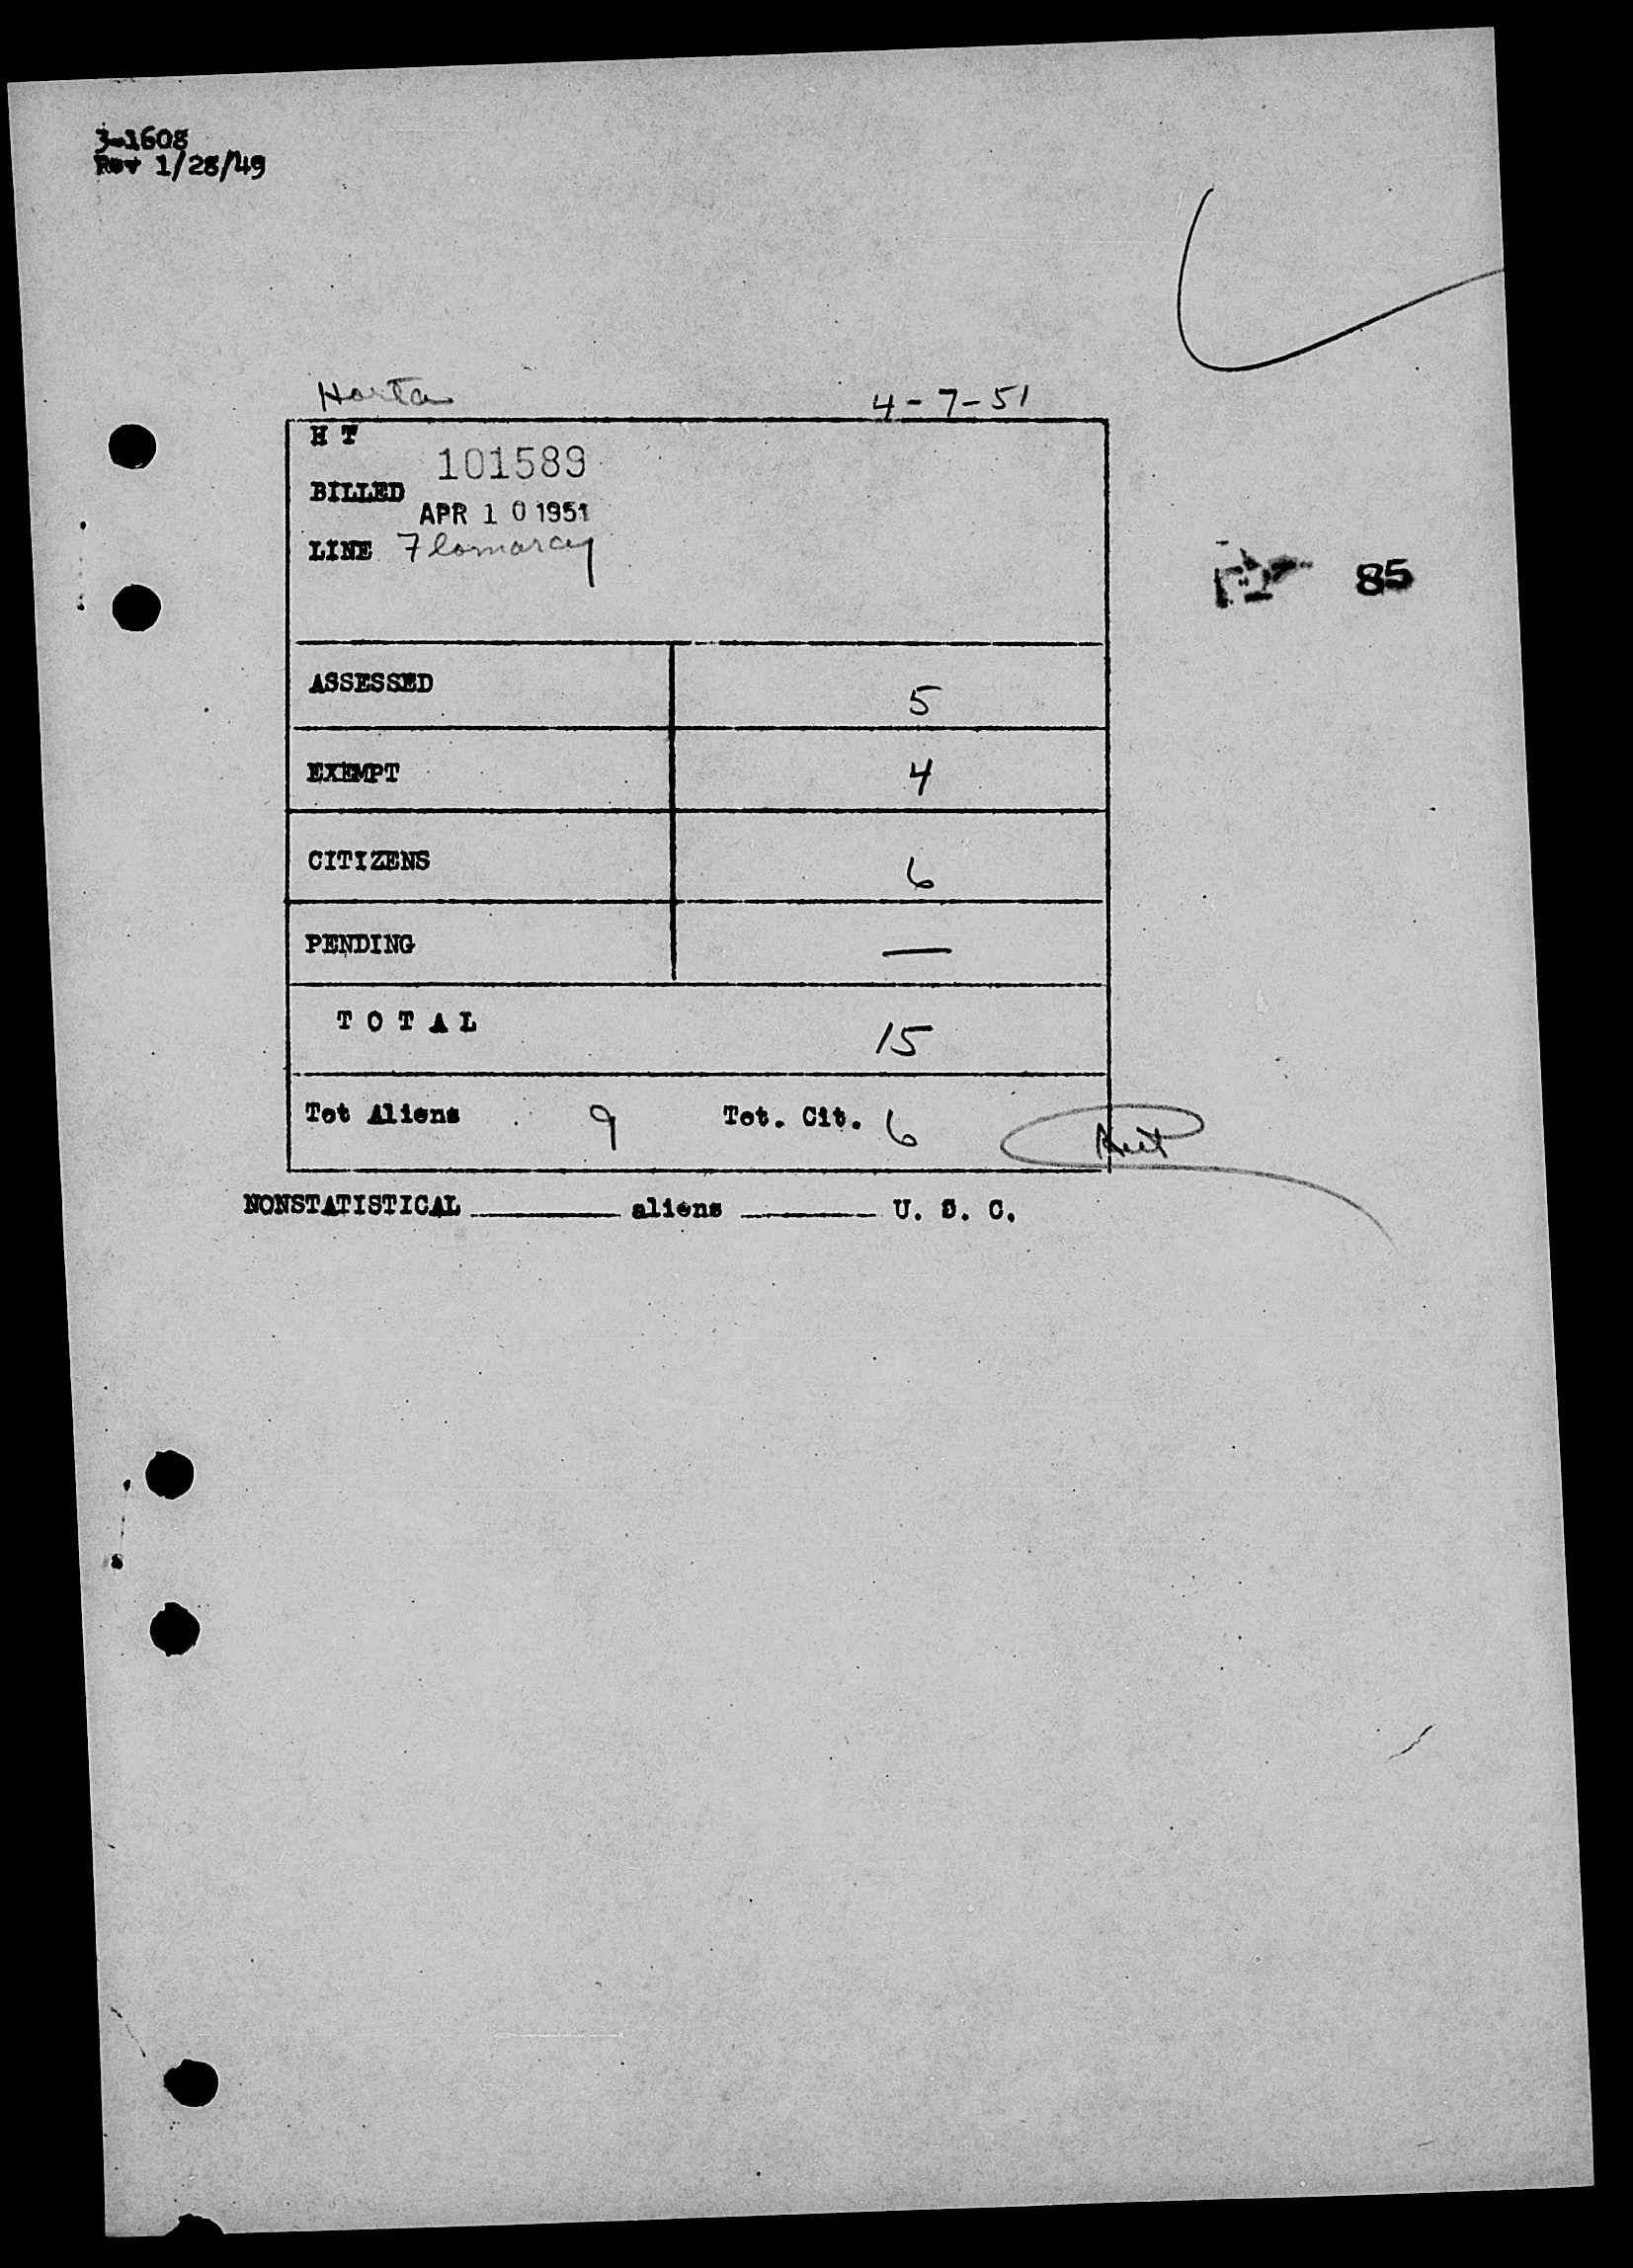 3-1608
Rev 1/28/49
Horta 4-7-51
H T
101589
BILLED
APR 10 1951
LINE Flomarcy
85
ASSESSED 5
EXEMPT 4
CITIZENS 6
PENDING —
TOTAL 15
Tot Aliens 9 Tot. Cit. 6
NONSTATISTICAL ______ aliens ______ U. S. C.